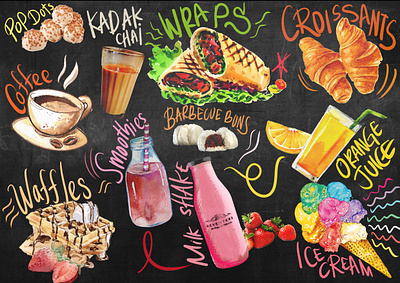 POP DOTS
KADAK
CHAI
WRAPS
CROISSANTS
Coffee
Smoothies
BARBECUE BUNS
ORANGE
JUICE
Waffles
Milk SHAKE
ICE
CREAM